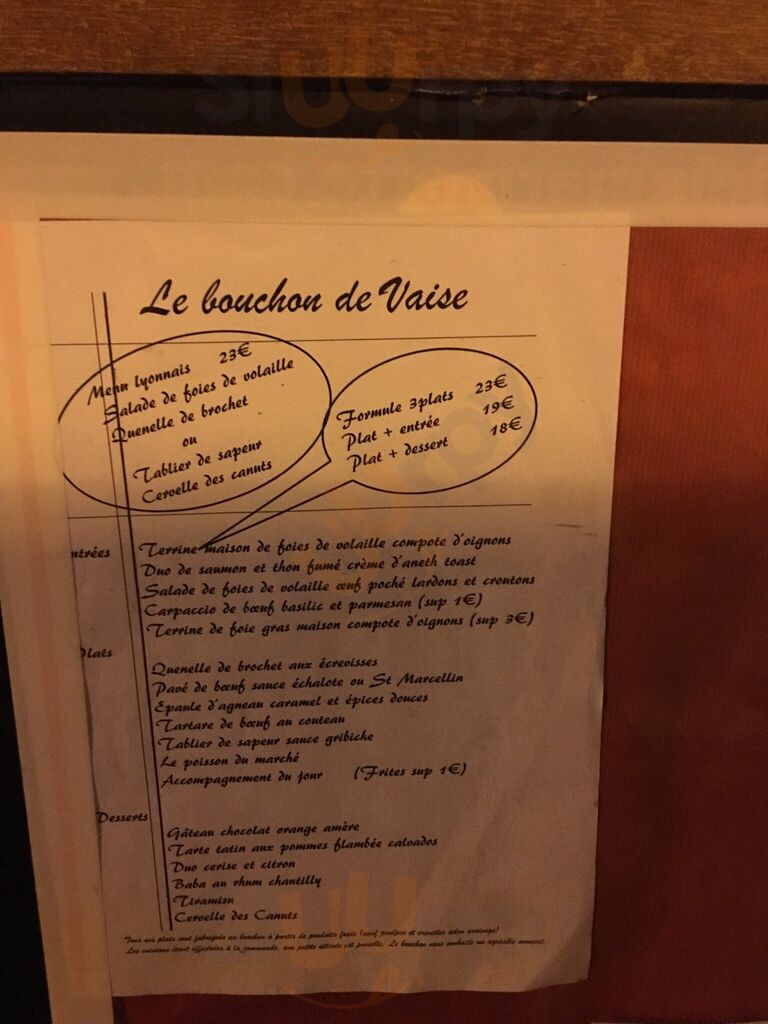 sluurpy
Le bouchon de Vaise
Menu lyonnais 23€
Salade de foies de volaille
Quenelle de brochet
ou
Tablier de sapeur
Cervelle des canuts
Formule 3plats 23€
Plat + entrée 19€
Plat + dessert 18€
ntrées
Terrine maison de foies de volaille compote d'oignons
Duo de saumon et thon fumé crème d'aneth toast
Salade de foies de volaille œuf poché lardons et croutons
Carpaccio de bœuf basilic et parmesan (sup 1€)
Terrine de foie gras maison compote d'oignons (sup 3€)
Plats
Quenelle de brochet aux écrevisses
Pavé de bœuf sauce échalote ou St Marcellin
Epaule d'agneau caramel et épices douces
Tartare de bœuf au couteau
Tablier de sapeur sauce gribiche
Le poisson du marché
Accompagnement du jour (Frites sup 1€)
Desserts
Gâteau chocolat orange amère
Tarte tatin aux pommes flambée calvados
Duo cerise et citron
Baba au rhum chantilly
Tiramisu
Cervelle des Canuts
Tous nos plats sont fabriqués au bouchon à partir de produits frais (sauf poulpes et crevettes selon arrivage)
Les cuissons étant effectuées à la commande, une petite attente est possible. Le bouchon vous souhaite un agréable moment.